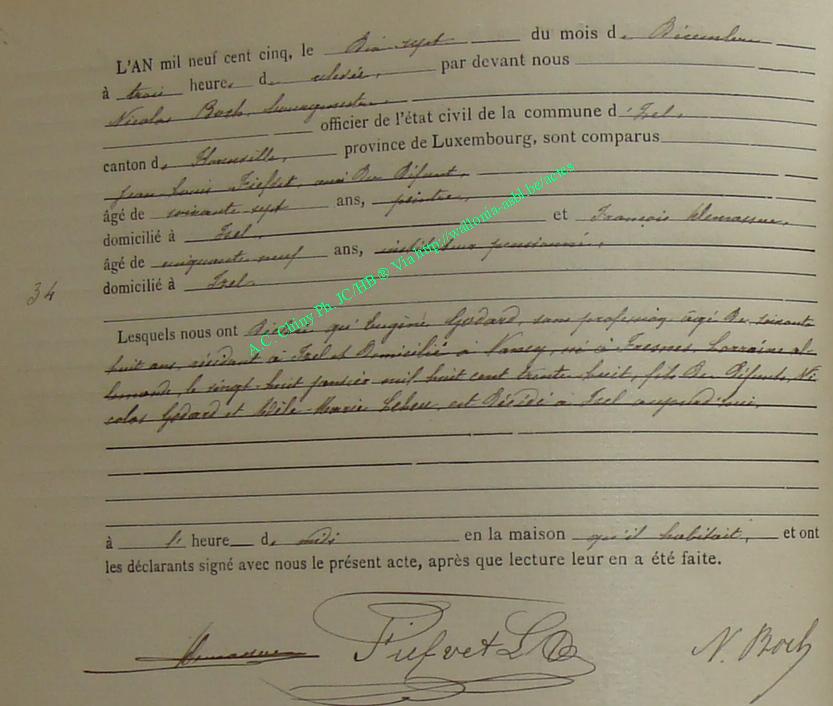 L'AN mil neuf cent cinq, le Dix sept du mois de Décembre
à trois heures de relevée, par devant nous
Nicolas Boch, bourgmestre
officier de l'état civil de la commune d'Izel,
canton de Florenville, province de Luxembourg, sont comparus
Jean Louis Fiefvet, ami du Défunt,
âgé de soixante sept ans, peintre,
domicilié à Izel, et François
âgé de cinquante neuf ans, instituteur pensionné,
domicilié à Izel.
34
Lesquels nous ont Déclaré qu'Eugène Godard, sans profession, âgé de soixante
huit ans, résidant à Izel et Domicilié à Nancy, né à Fresnes, Lorraine al-
lemande, le vingt-huit janvier mil huit cent trente huit, fils des Défunts Ni
colas Godard et Marie est Décédé à Izel aujourd'hui,
à l' heure de midi en la maison qu'il habitait, et ont
les déclarants signé avec nous le présent acte, après que lecture leur en a été faite.
Fiefvet N. Boch
A.C. Chiny Ph. JC/HB ® Via http://wallonia-asbl.be/actes